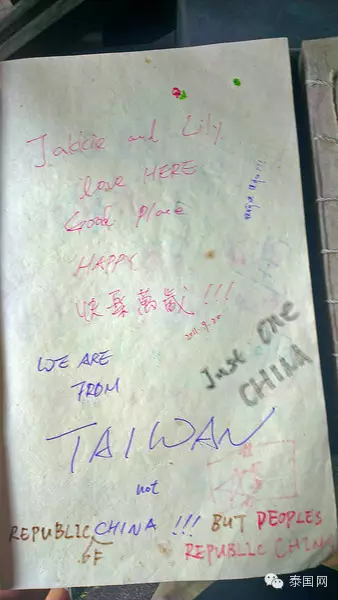 Jackie and Lily
love HERE
Good Place
HAPPY
快樂萬歲!!!
2011.9.20
Just ONE
CHINA
WE ARE
FROM
TAIWAN
not
REPUBLIC OF CHINA !!! BUT PEOPLES
REPUBLIC CHINA
泰国网